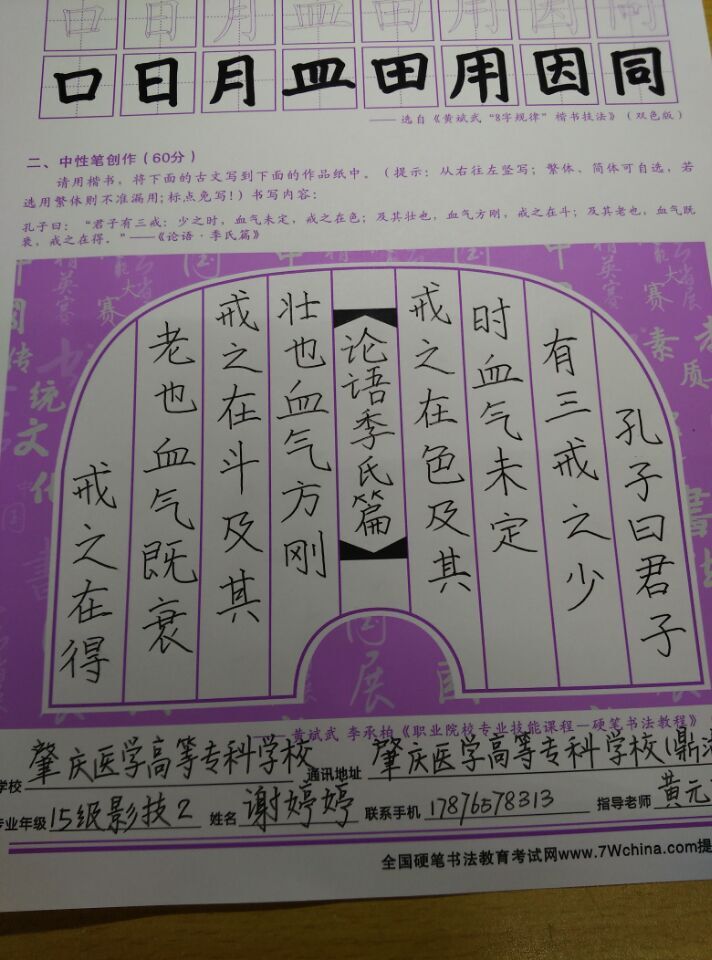 口日月皿田用因同
口日月皿田用因同
——选自《黄斌武“8字规律”楷书技法》（双色版）
二、中性笔创作（60分）
请用楷书，将下面的古文写到下面的作品纸中。（提示：从右往左竖写；繁体、简体可自选，若
选用繁体则不准漏用；标点免写！）书写内容：
孔子曰：“君子有三戒：少之时，血气未定，戒之在色；及其壮也，血气方刚，戒之在斗；及其老也，血气既
衰，戒之在得。”——《论语·季氏篇》
孔子曰君子
有三戒之少
时血气未定
戒之在色及其
论语季氏篇
壮也血气方刚
戒之在斗及其
老也血气既衰
戒之在得
——黄斌武 李承柏《职业院校专业技能课程—硬笔书法教程》
学校 肇庆医学高等专科学校 通讯地址 肇庆医学高等专科学校(鼎湖
专业年级 15级影技2 姓名 谢婷婷 联系手机 17876578313 指导老师 黄元
全国硬笔书法教育考试网www.7Wchina.com提